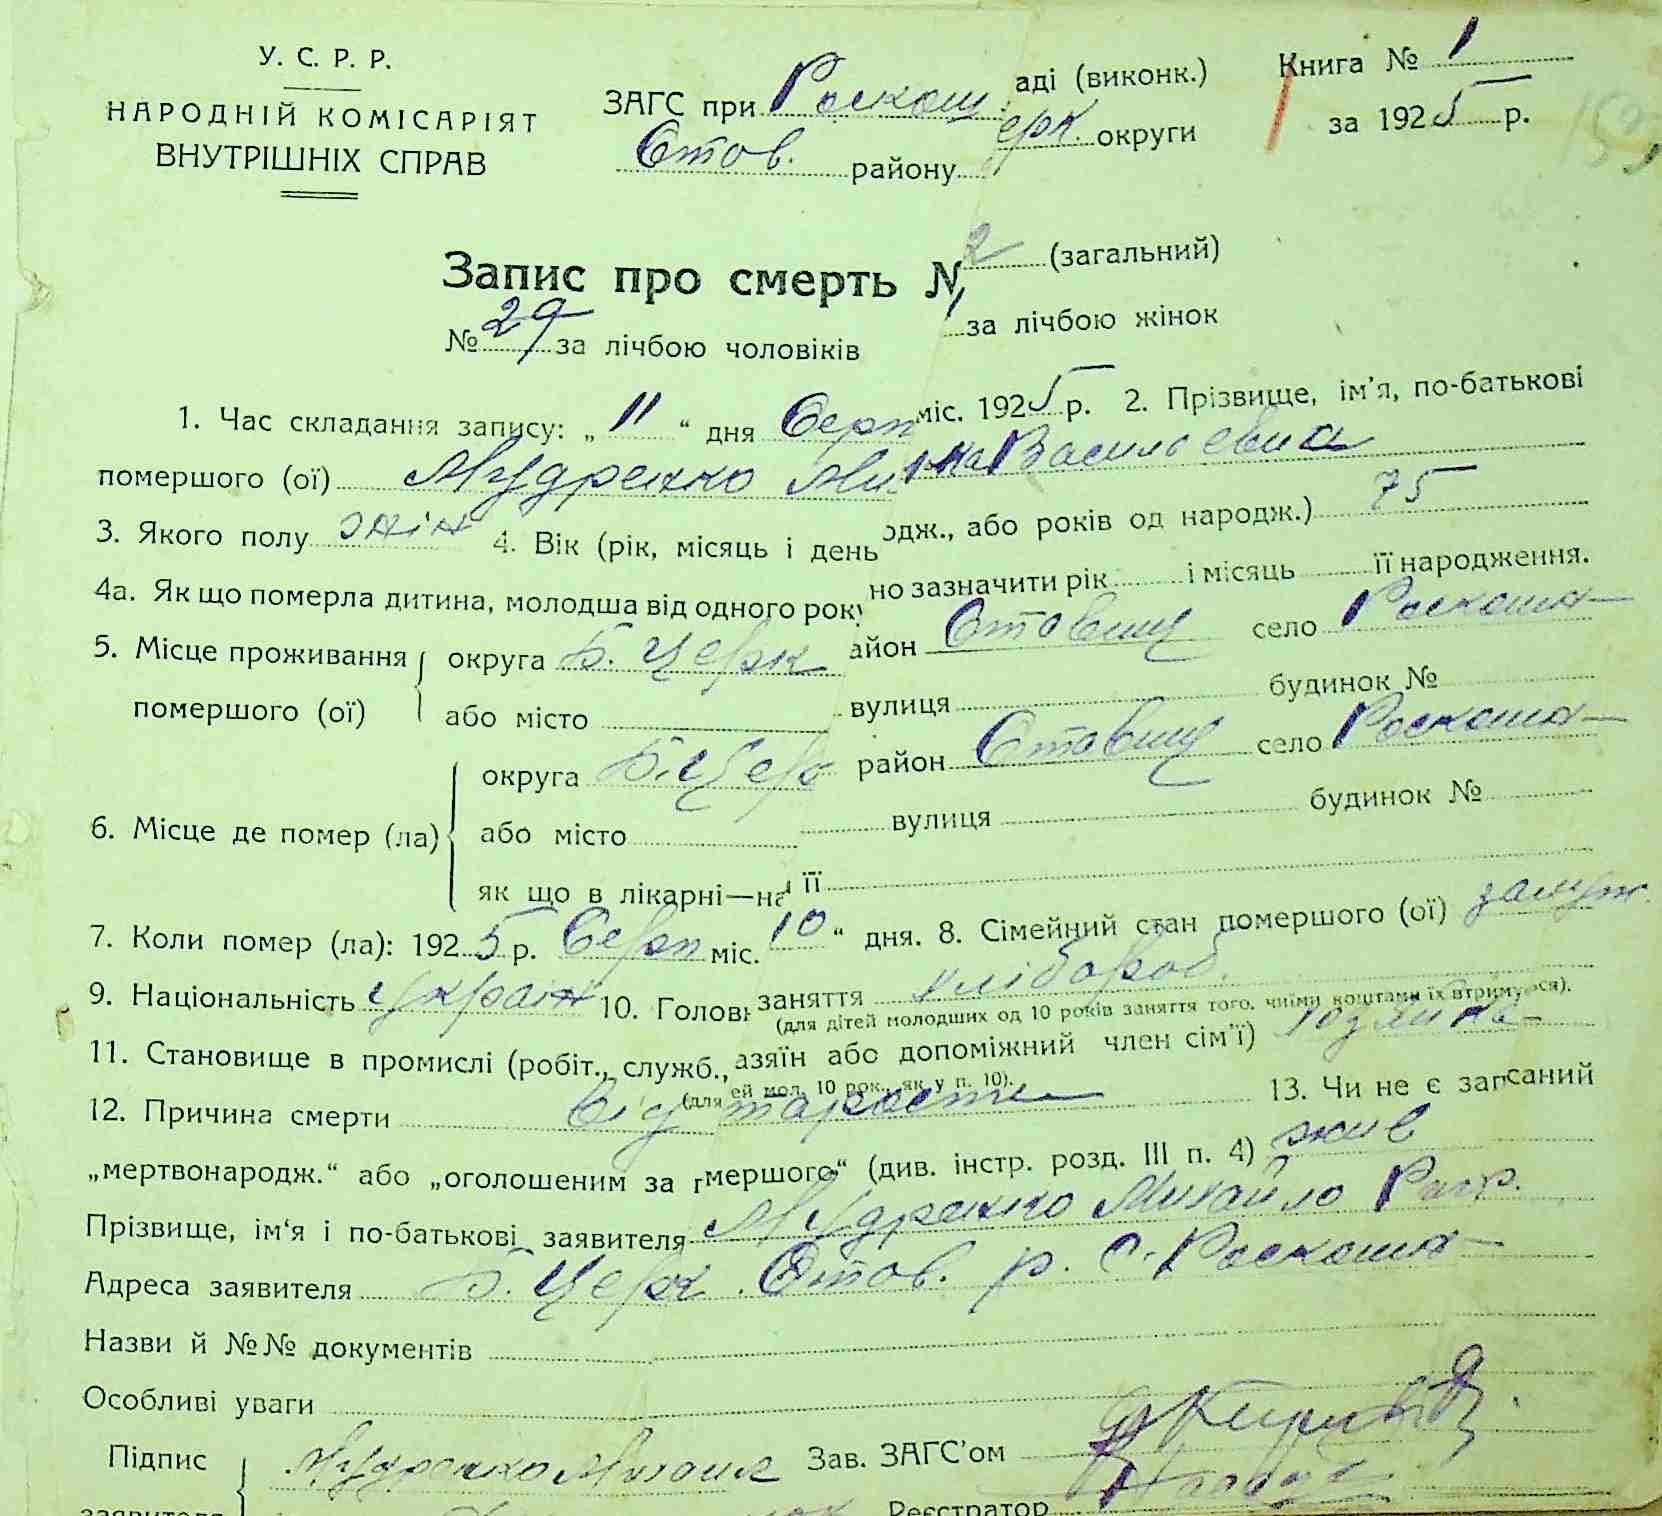 У. С. Р. Р.
НАРОДНІЙ КОМІСАРІЯТ
ВНУТРІШНІХ СПРАВ
ЗАГС при Роскош. аді (виконк.)
Став. району ерк округи
Книга № 1
за 1925 р.
Запис про смерть № 2 (загальний)
№ 29 за лічбою чоловіків за лічбою жінок
1. Час складання запису: „11“ дня Серп міс. 1925 р. 2. Прізвище, ім'я, по-батькові
помершого (ої) Мудренко Васильевна
3. Якого полу жін 4. Вік (рік, місяць і день одж., або років од народж.) 75
4а. Як що померла дитина, молодша від одного року но зазначити рік і місяць її народження.
5. Місце проживання помершого (ої) округа Б. Церк айон Ставищ село Роскошна
або місто вулиця будинок №
6. Місце де помер (ла) округа Б. Церк район Ставищ село Роскошна
або місто вулиця будинок №
як що в лікарні—на її
7. Коли помер (ла): 1925 р. Серп міс. 10“ дня. 8. Сімейний стан помершого (ої) замуж.
9. Національність україн 10. Головн заняття хлібороб.
(для дітей молодших од 10 років заняття того, чиїми коштами їх втримується).
11. Становище в промислі (робіт., служб., азяїн або допоміжний член сім'ї)
(для ей мол. 10 рок., як у п. 10).
12. Причина смерти Від старости 13. Чи не є записаний
„мертвонародж.“ або „оголошеним за мершого“ (див. інстр. розд. III п. 4) жив
Прізвище, ім‘я і по-батькові заявителя Мудренко Михайло
Адреса заявителя Б. Церк. Став. р. С. Роскошна
Назви й №№ документів
Особливі уваги
Підпис заявителя Мудренко Михаил Зав. ЗАГС'ом
Реєстратор